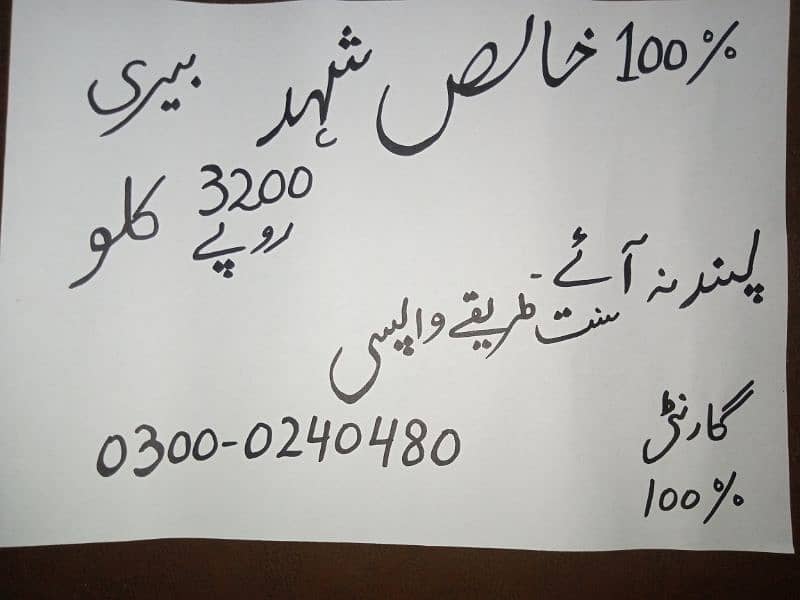 100% خالص شہد بیری
3200 روپے کلو
پسند نہ آئے۔
سنت طریقے واپسی
گارنٹی
100%
0300-0240480